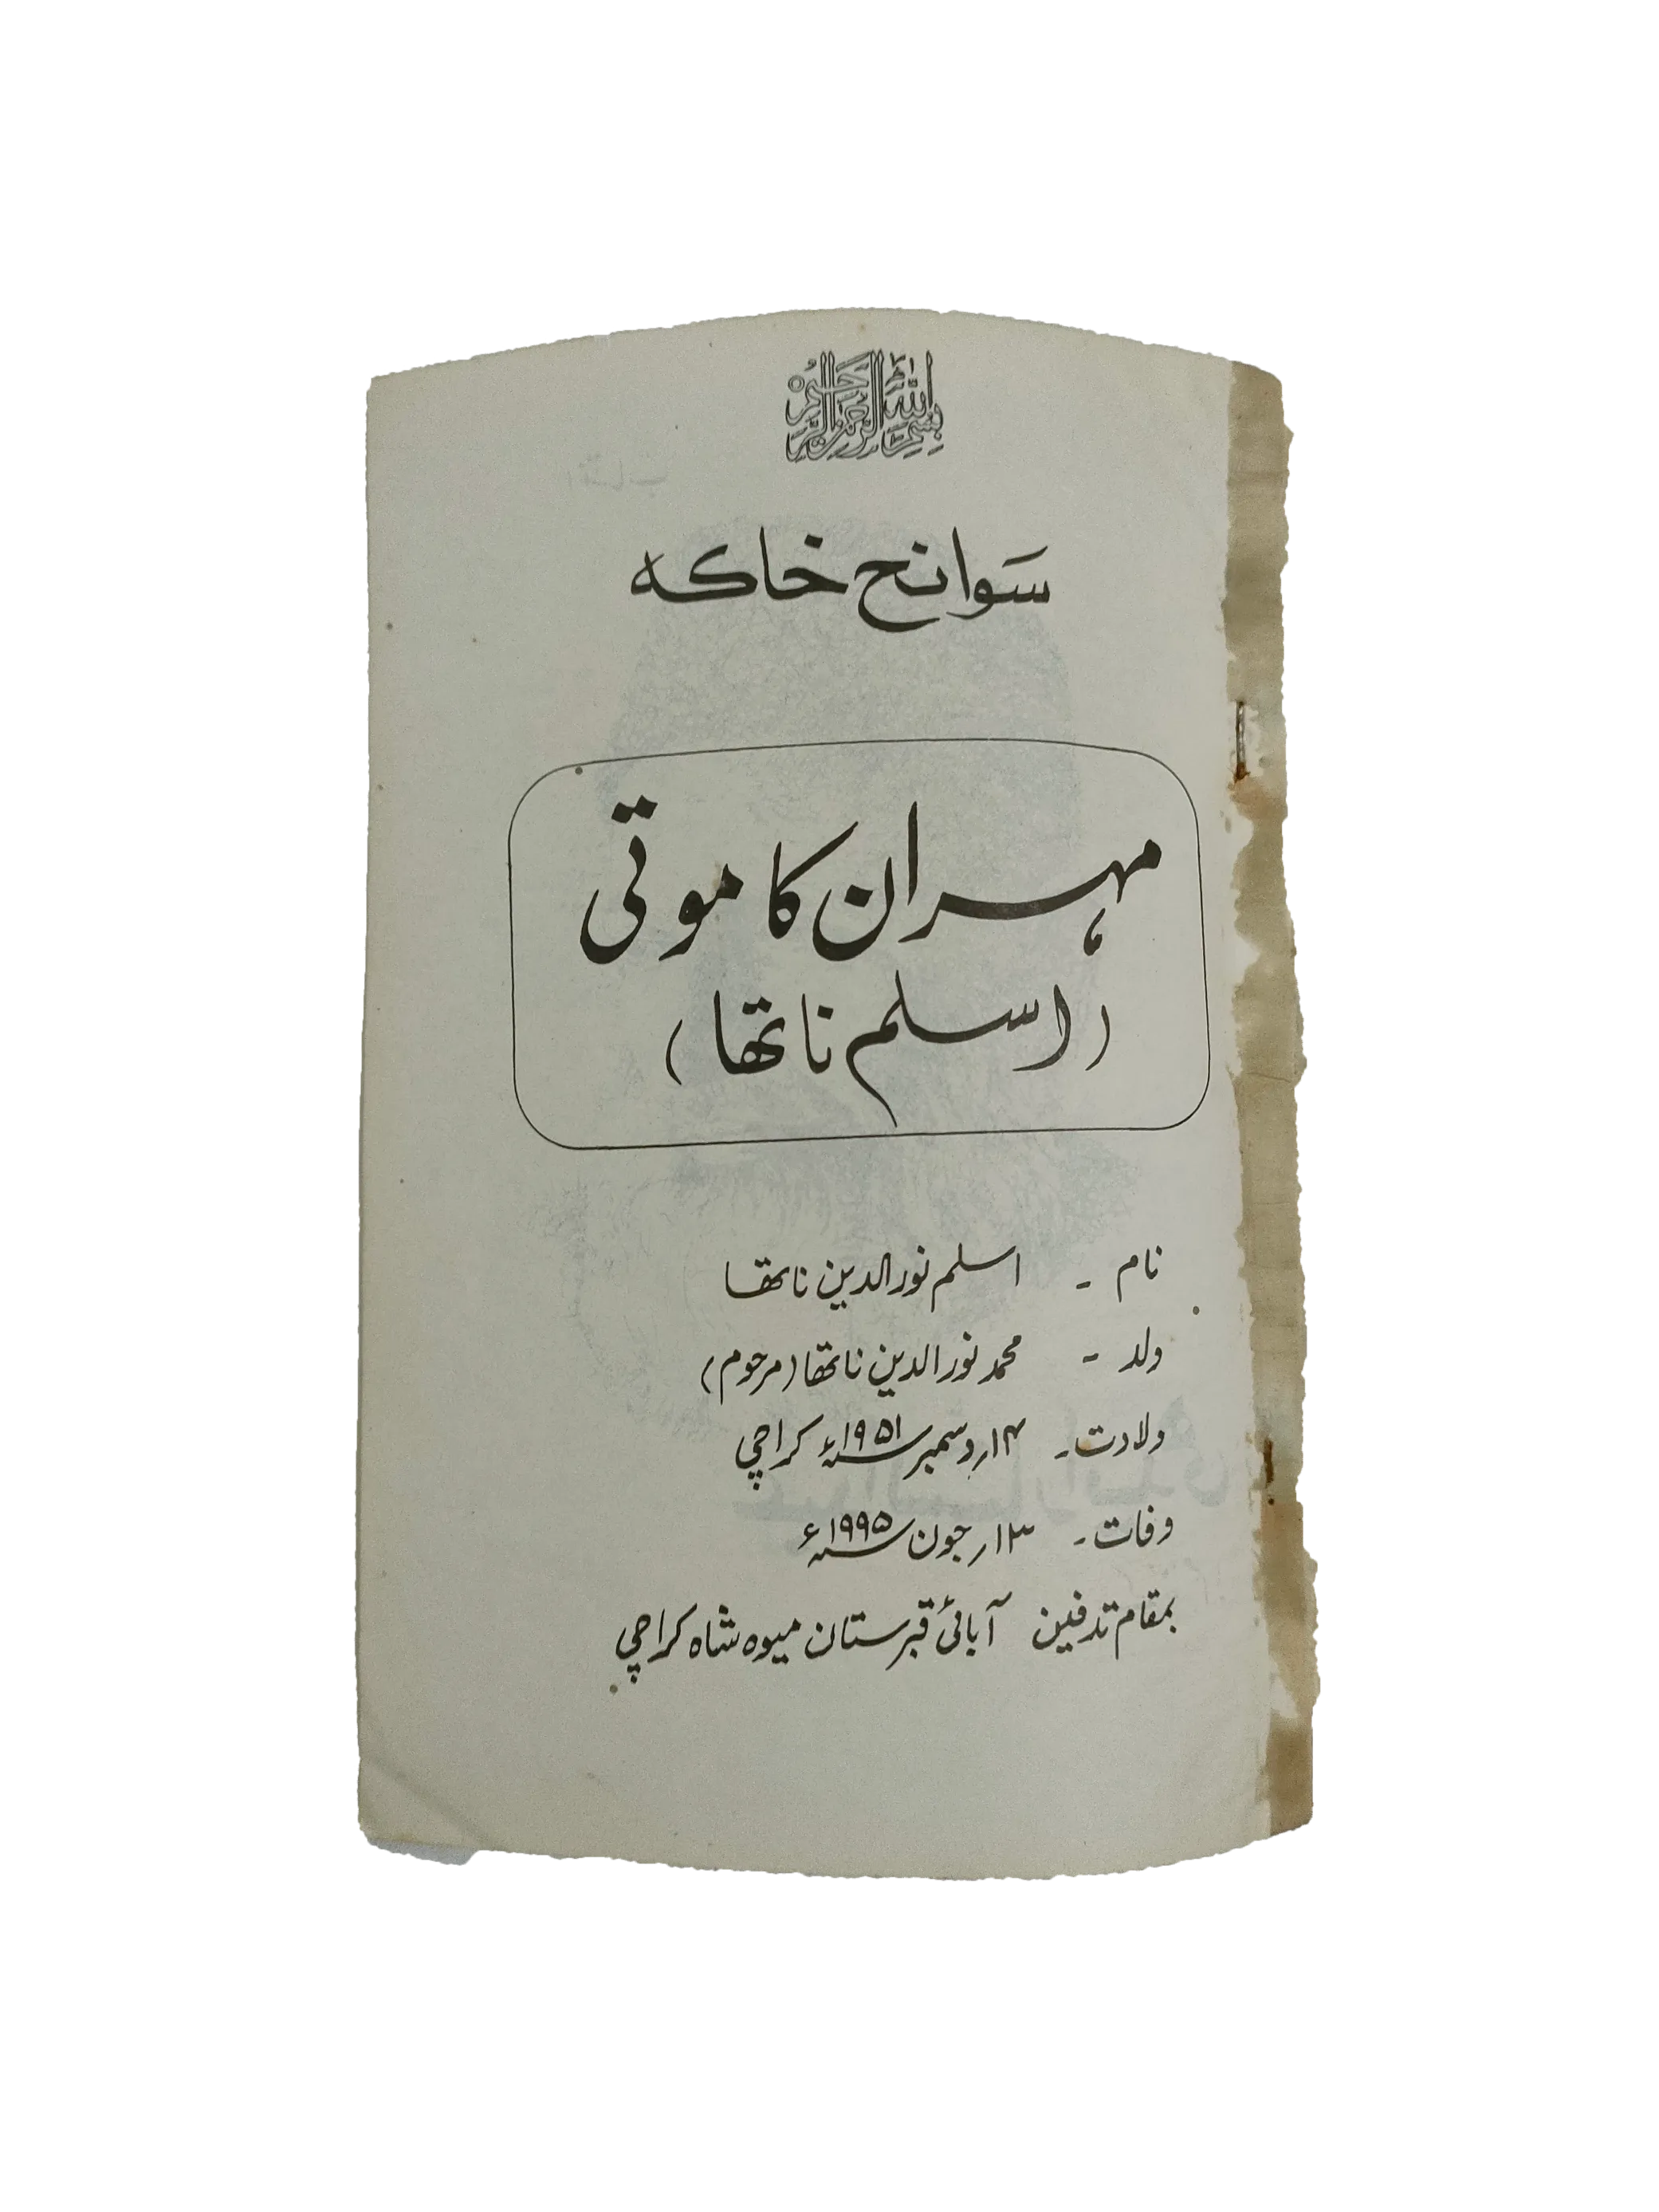 بسم الله الرحمن الرحيم
سوانح خاکہ
مہران کا موتی
(اسلم ناتھا)
نام - اسلم نورالدین ناتھا
ولد - محمد نورالدین ناتھا (مرحوم)
ولادت - ۱۴ر دسمبر ۱۹۵۱ء کراچی
وفات - ۱۳ر جون ۱۹۹۵ء
بمقام تدفین آبائی قبرستان میوہ شاہ کراچی